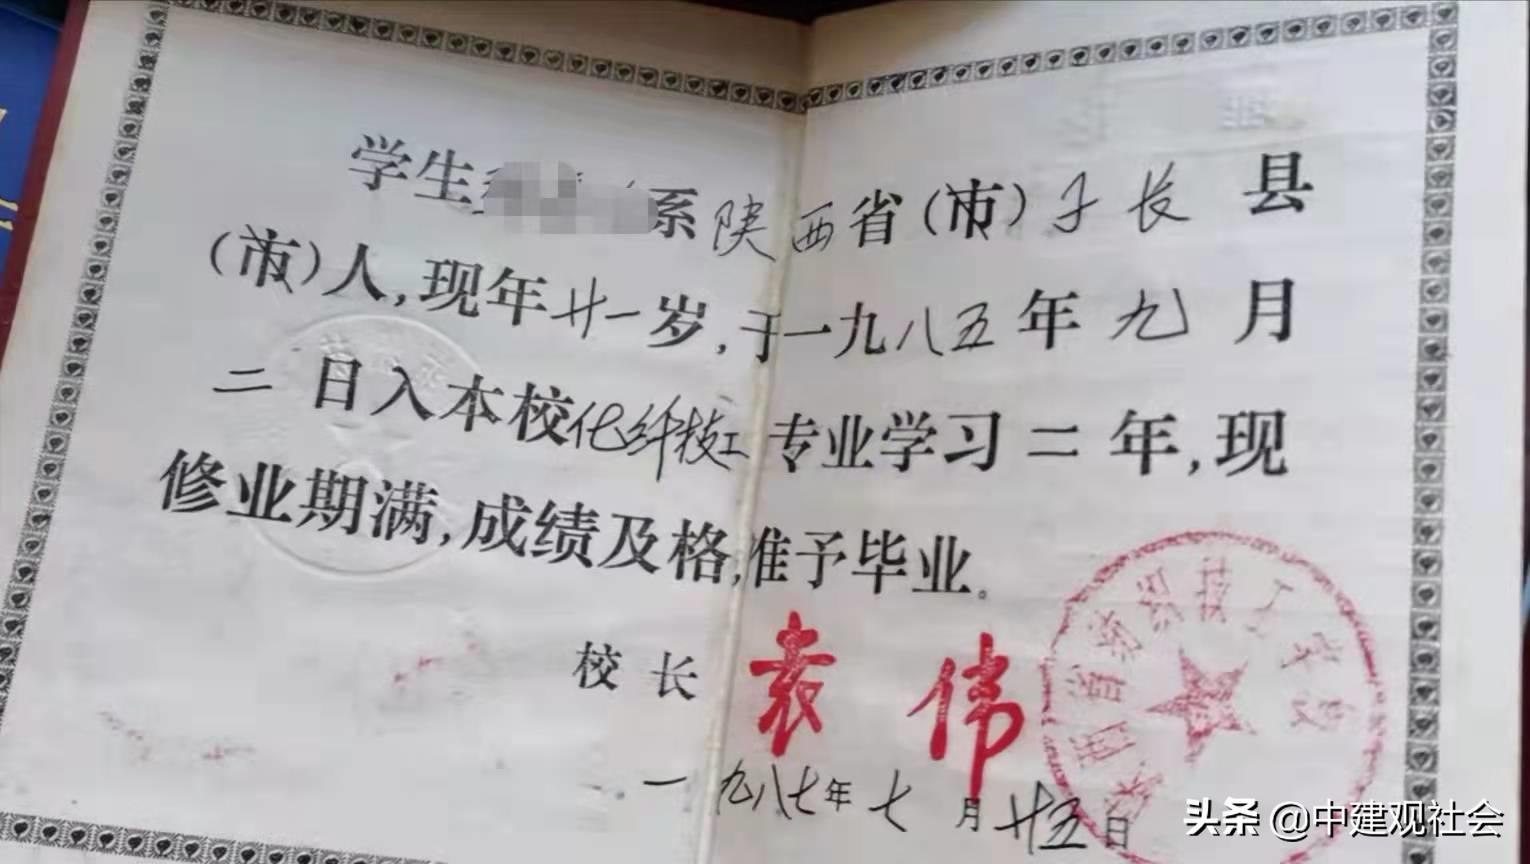 学生 系陕西省(市)子长县
(市)人,现年廿一岁,于一九八五年九月
二日入本校化纤技工专业学习二年,现
修业期满,成绩及格,准予毕业。
校长 袁伟
一九八七年七月廿五日
陕西省纺织技工学校
头条 @中建观社会